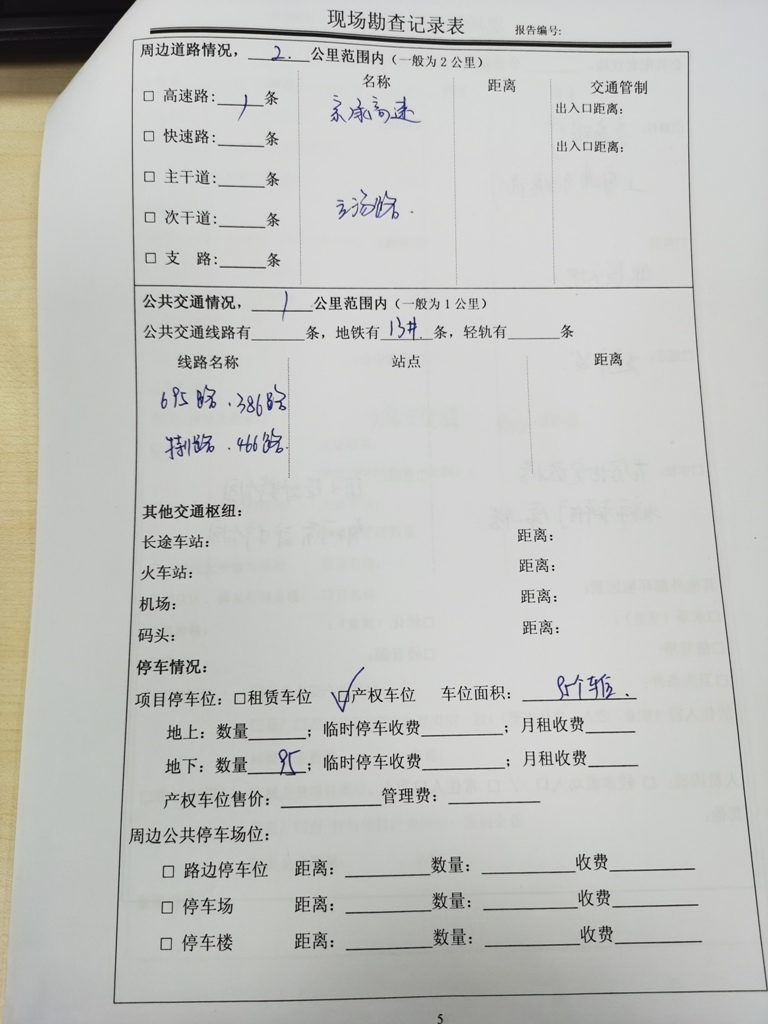 现场勘查记录表 报告编号:
周边道路情况，2.公里范围内（一般为2公里）
名称 距离 交通管制
□ 高速路:1条 京承高速 出入口距离:
□ 快速路:____条 出入口距离:
□ 主干道:____条
□ 次干道:____条 路.
□ 支 路:____条
公共交通情况，1公里范围内（一般为1公里）
公共交通线路有____条，地铁有13#条，轻轨有____条
线路名称 站点 距离
695路.386路
路.466路.
其他交通枢纽:
长途车站: 距离:
火车站: 距离:
机场: 距离:
码头: 距离:
停车情况:
项目停车位: □租赁车位 ☑产权车位 车位面积: 95个车位.
地上: 数量____; 临时停车收费____; 月租收费____
地下: 数量95; 临时停车收费____; 月租收费____
产权车位售价: ____管理费: ____
周边公共停车场位:
□ 路边停车位 距离: ____数量: ____收费____
□ 停车场 距离: ____数量: ____收费____
□ 停车楼 距离: ____数量: ____收费____
5